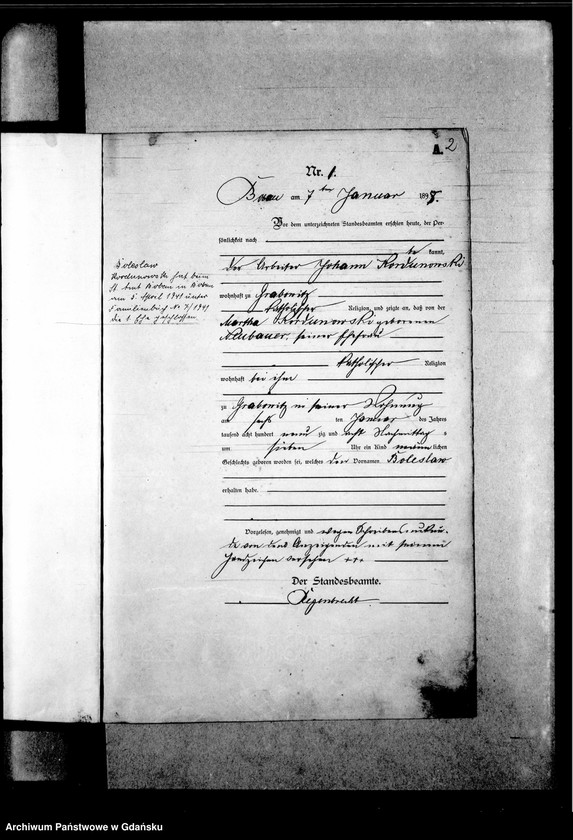 A. 2
Nr. 1.
am 7ten Januar 1898.
Vor dem unterzeichneten Standesbeamten erschien heute, der Per-
sönlichkeit nach
kannt,
der Arbeiter Johann Kordunowski
wohnhaft zu Grabowitz
katholischer Religion, und zeigte an, daß von der
Martha Kordunowski geborenen
Neubauer, seiner Ehefrau
katholischer Religion
wohnhaft bei ihm
zu Grabowitz in seiner Wohnung
am sechs ten Januar des Jahres
tausend acht hundert neun zig und acht Nachmittag s
um sieben Uhr ein Kind männlichen
Geschlechts geboren worden sei, welches den Vornamen Boleslaw
erhalten habe.
Vorgelesen, genehmigt und wegen Schreibensunkun-
de von dem Anzeigenden mit seinem
Handzeichen versehen +++
Der Standesbeamte.
Regenbrecht
Boleslaw
Kordunowski hat beim
St. Amt
am 5. April 1941 unter
Familienbuch Nr. 7/1941
die 1. Ehe geschlossen.
Archiwum Państwowe w Gdańsku